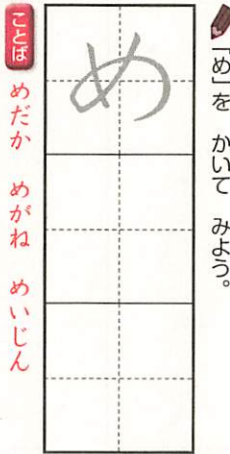 「め」を かいて みよう。
め
ことば めだか めがね めいじん